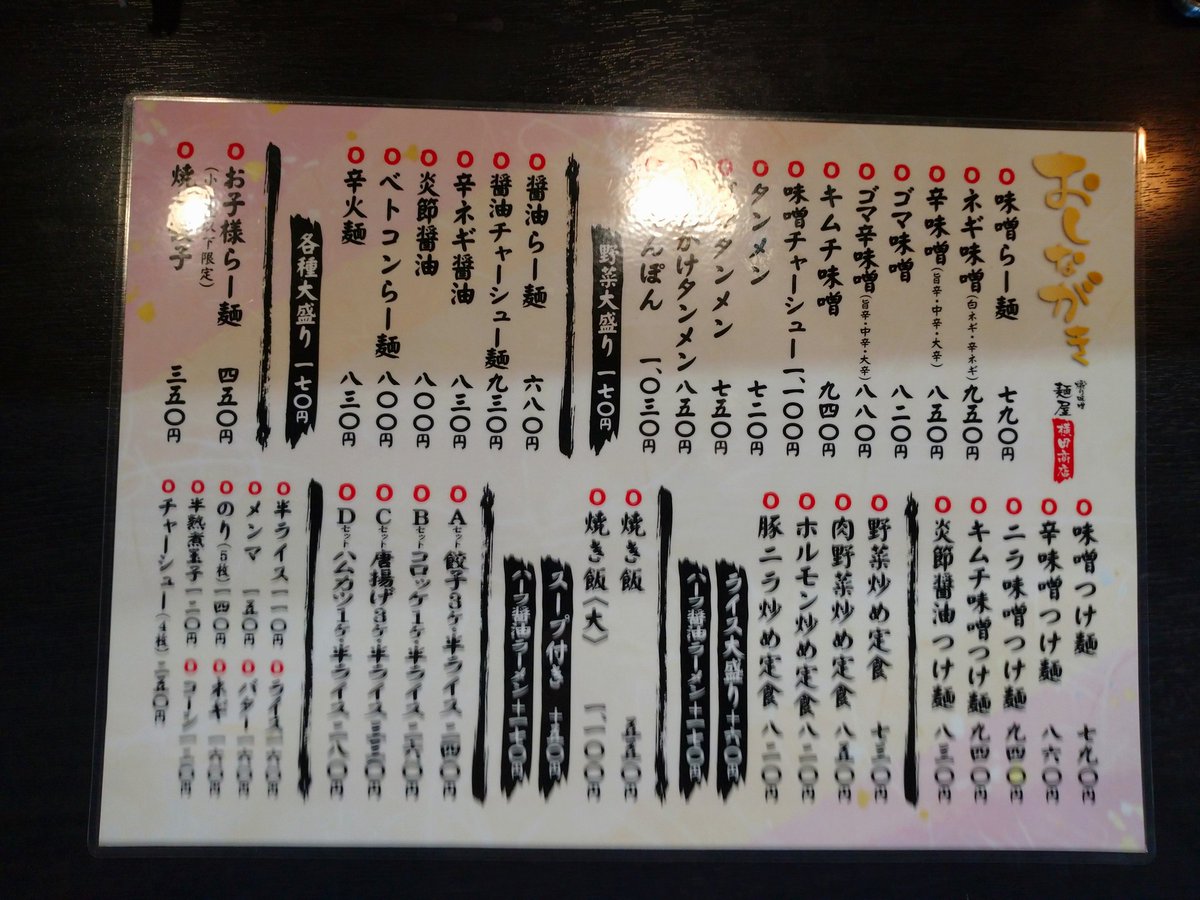 おしながき
麺屋
横田商店
味噌らー麺 七九〇円
ネギ味噌(白ネギ・辛ネギ) 九五〇円
辛味噌(旨辛・中辛・大辛) 八五〇円
ゴマ味噌 八二〇円
ゴマ辛味噌(旨辛・中辛・大辛) 八八〇円
キムチ味噌 九四〇円
味噌チャーシュー 一、一〇〇円
タンメン 七二〇円
タンメン 七五〇円
かけタンメン 八五〇円
んぽん 一、〇三〇円
野菜大盛り 一七〇円
醤油らー麺 六八〇円
醤油チャーシュー麺 九三〇円
辛ネギ醤油 八三〇円
炎節醤油 八〇〇円
ベトコンらー麺 八〇〇円
辛火麺 八三〇円
各種大盛り 一七〇円
お子様らー麺 四五〇円
(小 以下限定)
焼 子 三五〇円
味噌つけ麺 七九〇円
辛味噌つけ麺 八六〇円
ニラ味噌つけ麺 九四〇円
キムチ味噌つけ麺 九四〇円
炎節醤油つけ麺 八三〇円
野菜炒め定食 七三〇円
肉野菜炒め定食 八五〇円
ホルモン炒め定食 八二〇円
豚ニラ炒め定食 八二〇円
ライス大盛り+六〇円
ハーフ醤油ラーメン+二七〇円
焼き飯 五五〇円
焼き飯〈大〉 一、一〇〇円
スープ付き +五〇円
ハーフ醤油ラーメン+二七〇円
Aセット 餃子3ヶ・半ライス 二四〇円
Bセット コロッケ1ヶ・半ライス 二六〇円
Cセット 唐揚げ3ヶ・半ライス 三三〇円
Dセット ハムカツ1ヶ・半ライス 二八〇円
半ライス 一一〇円
メンマ 一五〇円
のり(5枚) 一四〇円
半熟煮玉子 一二〇円
チャーシュー(4枚) 二五〇円
ライス 一六〇円
バター 一六〇円
ネギ 一六〇円
コーン 一三〇円